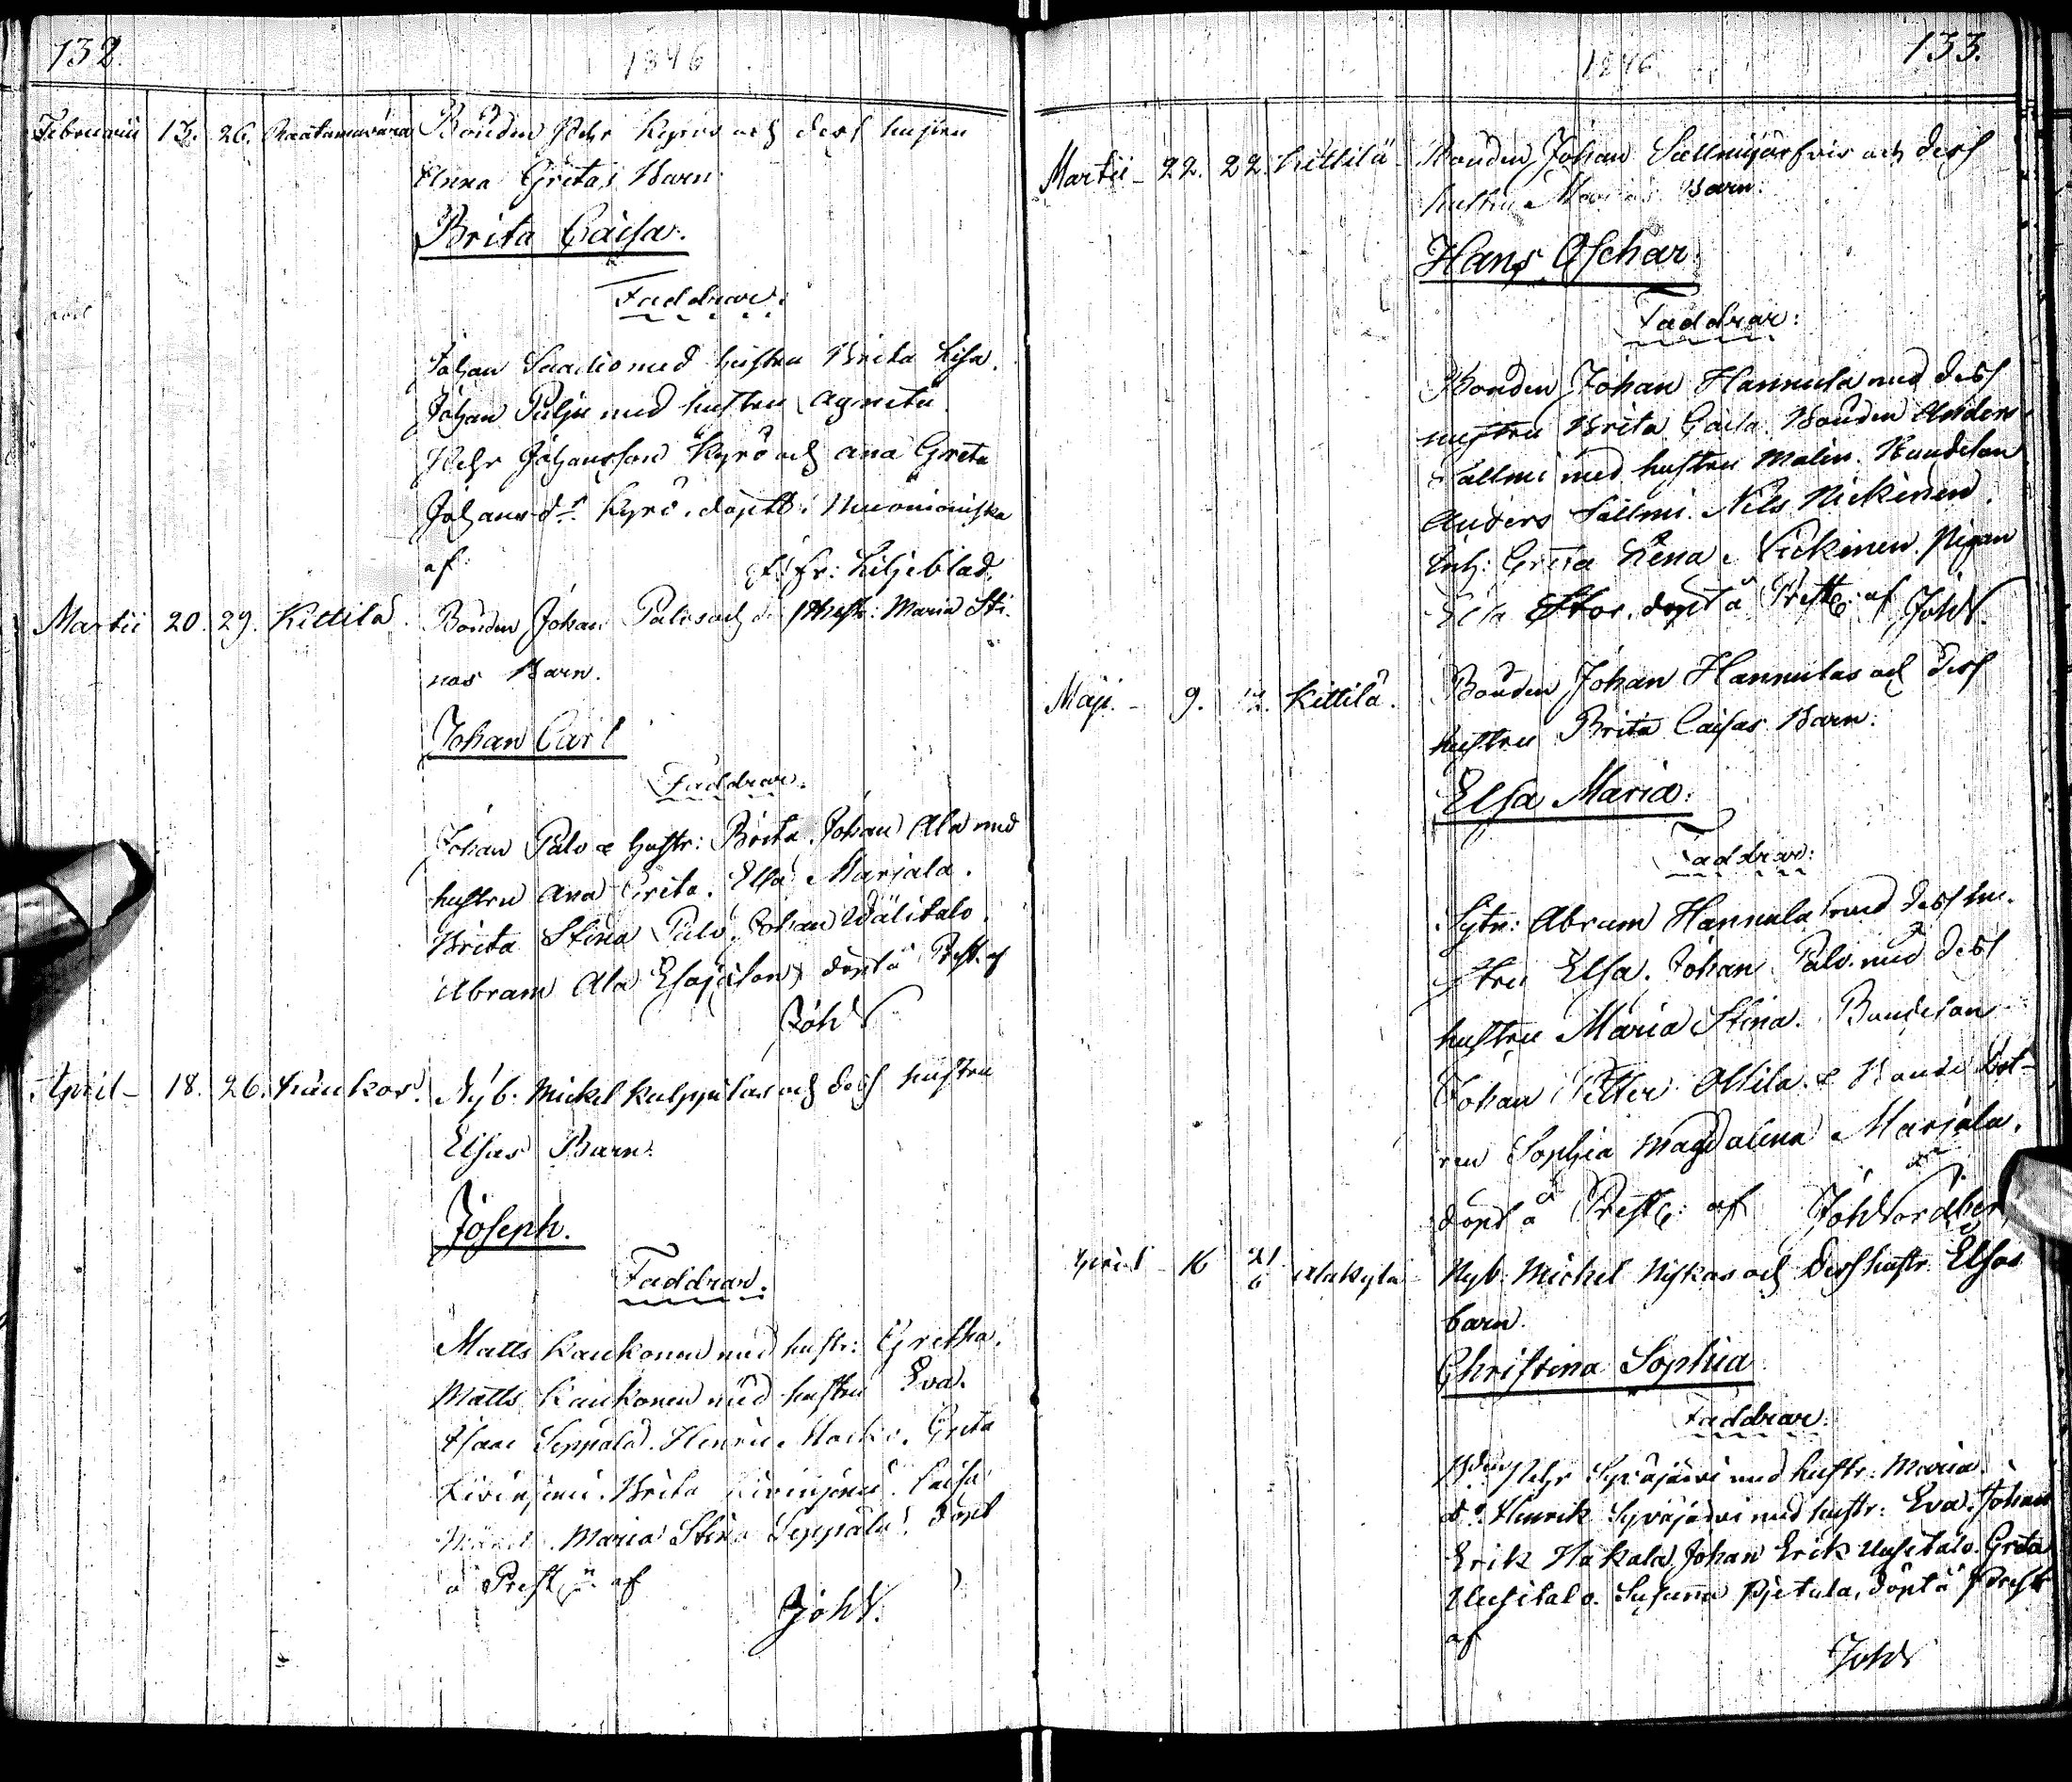 132.
1846
Februarii 13. 26. Raatamavaara Bonden Pehr Kyrös och dess hustru
Anna Gretas Barn
Brita Caisa.
Faddrar:
Johan Saario med hustru Brita Lisa.
Johan Pulju med hustru Agneta
Pehr Johansson Kyrö och Ana Greta
Johansdr Kyrö. döpt i Muonioniska
af: Fr: Liljeblad.
Martii 20. 29. Kittilä. Bonden Johan Palos och hustr: Maria Sti-
nas Barn.
Johan Carl
Faddrar.
Johan Palo & hustr: Brita. Johan Ala med
hustru Ana Greta. Elsa Marjala.
Brita Stina Palo, Johan Wälitalo.
Abram Ala Esajason, döpt å Prest. af
JohN
April 18. 26. Kaukos. Nyb. Mickel Kulppilas och dess hustru
Elsas Barn.
Joseph.
Faddrar.
Matts Kaukonen med hustr: Gretha.
Matts Kaukonen med hustru Eva.
Isaac Seppälä. Henric. Greta
Kivinjemi. Brita Kivinjemi. Caisa
Maria Stina Seppälä. döpt
å Prest af
JohN.
133.
1846
Martii 22. 22. Kittilä Bonden Johan Sallmijärfvis och dess
hustru Marias Barn.
Hans Oschar.
Faddrar:
Bonden Johan Hannula med dess
hustru Brita Caisa. Bonden Anders
Sallmi med hustru Malin. Bondeson
Anders Sallmi. Nils Nickinen.
Enk: Greta Lena Nickinen. Pigan
döpt å Prestg. af JohN.
Maji. 9. Kittilä. Bonden Johan Hannulas och dess
hustru Brita Caisas Barn.
Elsa Maria.
Faddrar:
Sytn: Abram Hannula med dess hu-
stru Elsa. Johan Palo med dess
hustru Maria Stina. Bondeson
Johan Petter Ollila & Bonde Dot-
ren Sophia Magdalena Marjala.
döpt å Prestg: af JohNordberg
April 16 21/6 Alakylä Nyb. Mickel Niskas och dess hustr. Elsas
barn.
Christina Sophia
Faddrar.
Bden Pehr Syväjärvi med hustr: Maria.
do. Henrik Syväjärvi med hustr: Eva. Johan
Erik Hakala, Johan Erik Uusitalo. Greta
Uusitalo. Susanna Pietula, döpt å Prestg
af
JohN